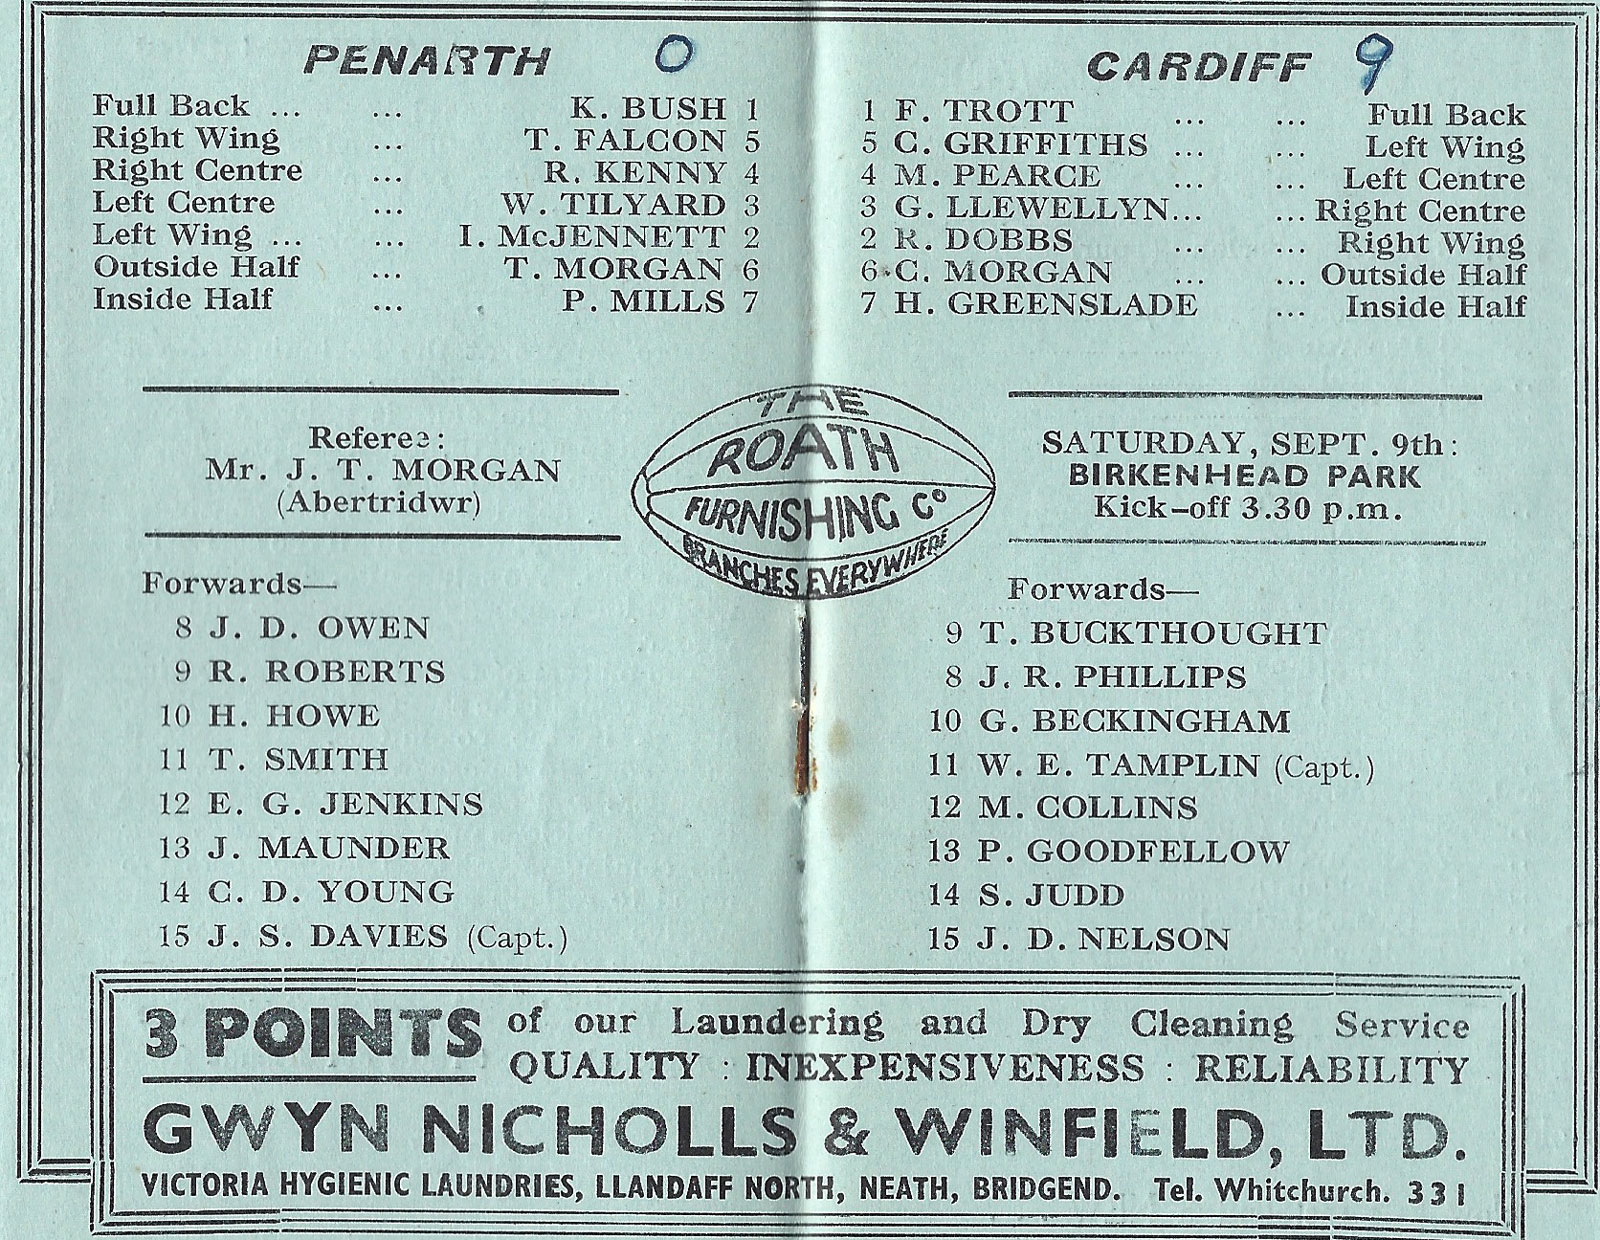 PENARTH 0
Full Back ... ... K. BUSH 1
Right Wing ... T. FALCON 5
Right Centre ... R. KENNY 4
Left Centre ... W. TILYARD 3
Left Wing ... ... I. McJENNETT 2
Outside Half ... T. MORGAN 6
Inside Half ... P. MILLS 7
CARDIFF 9
1 F. TROTT ... ... Full Back
5 C. GRIFFITHS ... ... Left Wing
4 M. PEARCE ... ... Left Centre
3 G. LLEWELLYN... ... Right Centre
2 R. DOBBS ... ... Right Wing
6 C. MORGAN ... ... Outside Half
7 H. GREENSLADE ... Inside Half
Referee:
Mr. J. T. MORGAN
(Abertridwr)
THE
ROATH
FURNISHING Co
BRANCHES EVERYWHERE
SATURDAY, SEPT. 9th:
BIRKENHEAD PARK
Kick-off 3.30 p.m.
Forwards—
8 J. D. OWEN
9 R. ROBERTS
10 H. HOWE
11 T. SMITH
12 E. G. JENKINS
13 J. MAUNDER
14 C. D. YOUNG
15 J. S. DAVIES (Capt.)
Forwards—
9 T. BUCKTHOUGHT
8 J. R. PHILLIPS
10 G. BECKINGHAM
11 W. E. TAMPLIN (Capt.)
12 M. COLLINS
13 P. GOODFELLOW
14 S. JUDD
15 J. D. NELSON
3 POINTS of our Laundering and Dry Cleaning Service
QUALITY : INEXPENSIVENESS : RELIABILITY
GWYN NICHOLLS & WINFIELD, LTD.
VICTORIA HYGIENIC LAUNDRIES, LLANDAFF NORTH, NEATH, BRIDGEND. Tel. Whitchurch. 331